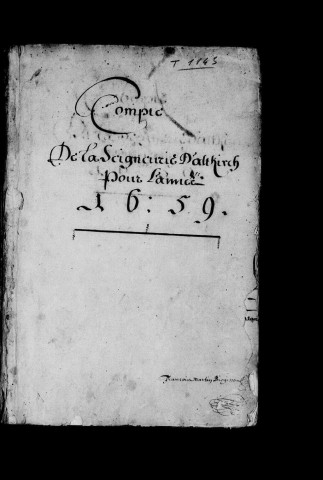 T 1143
Compte
De la Seigneurie D'altkirch
pour L'année
1 6 : 5 9 .